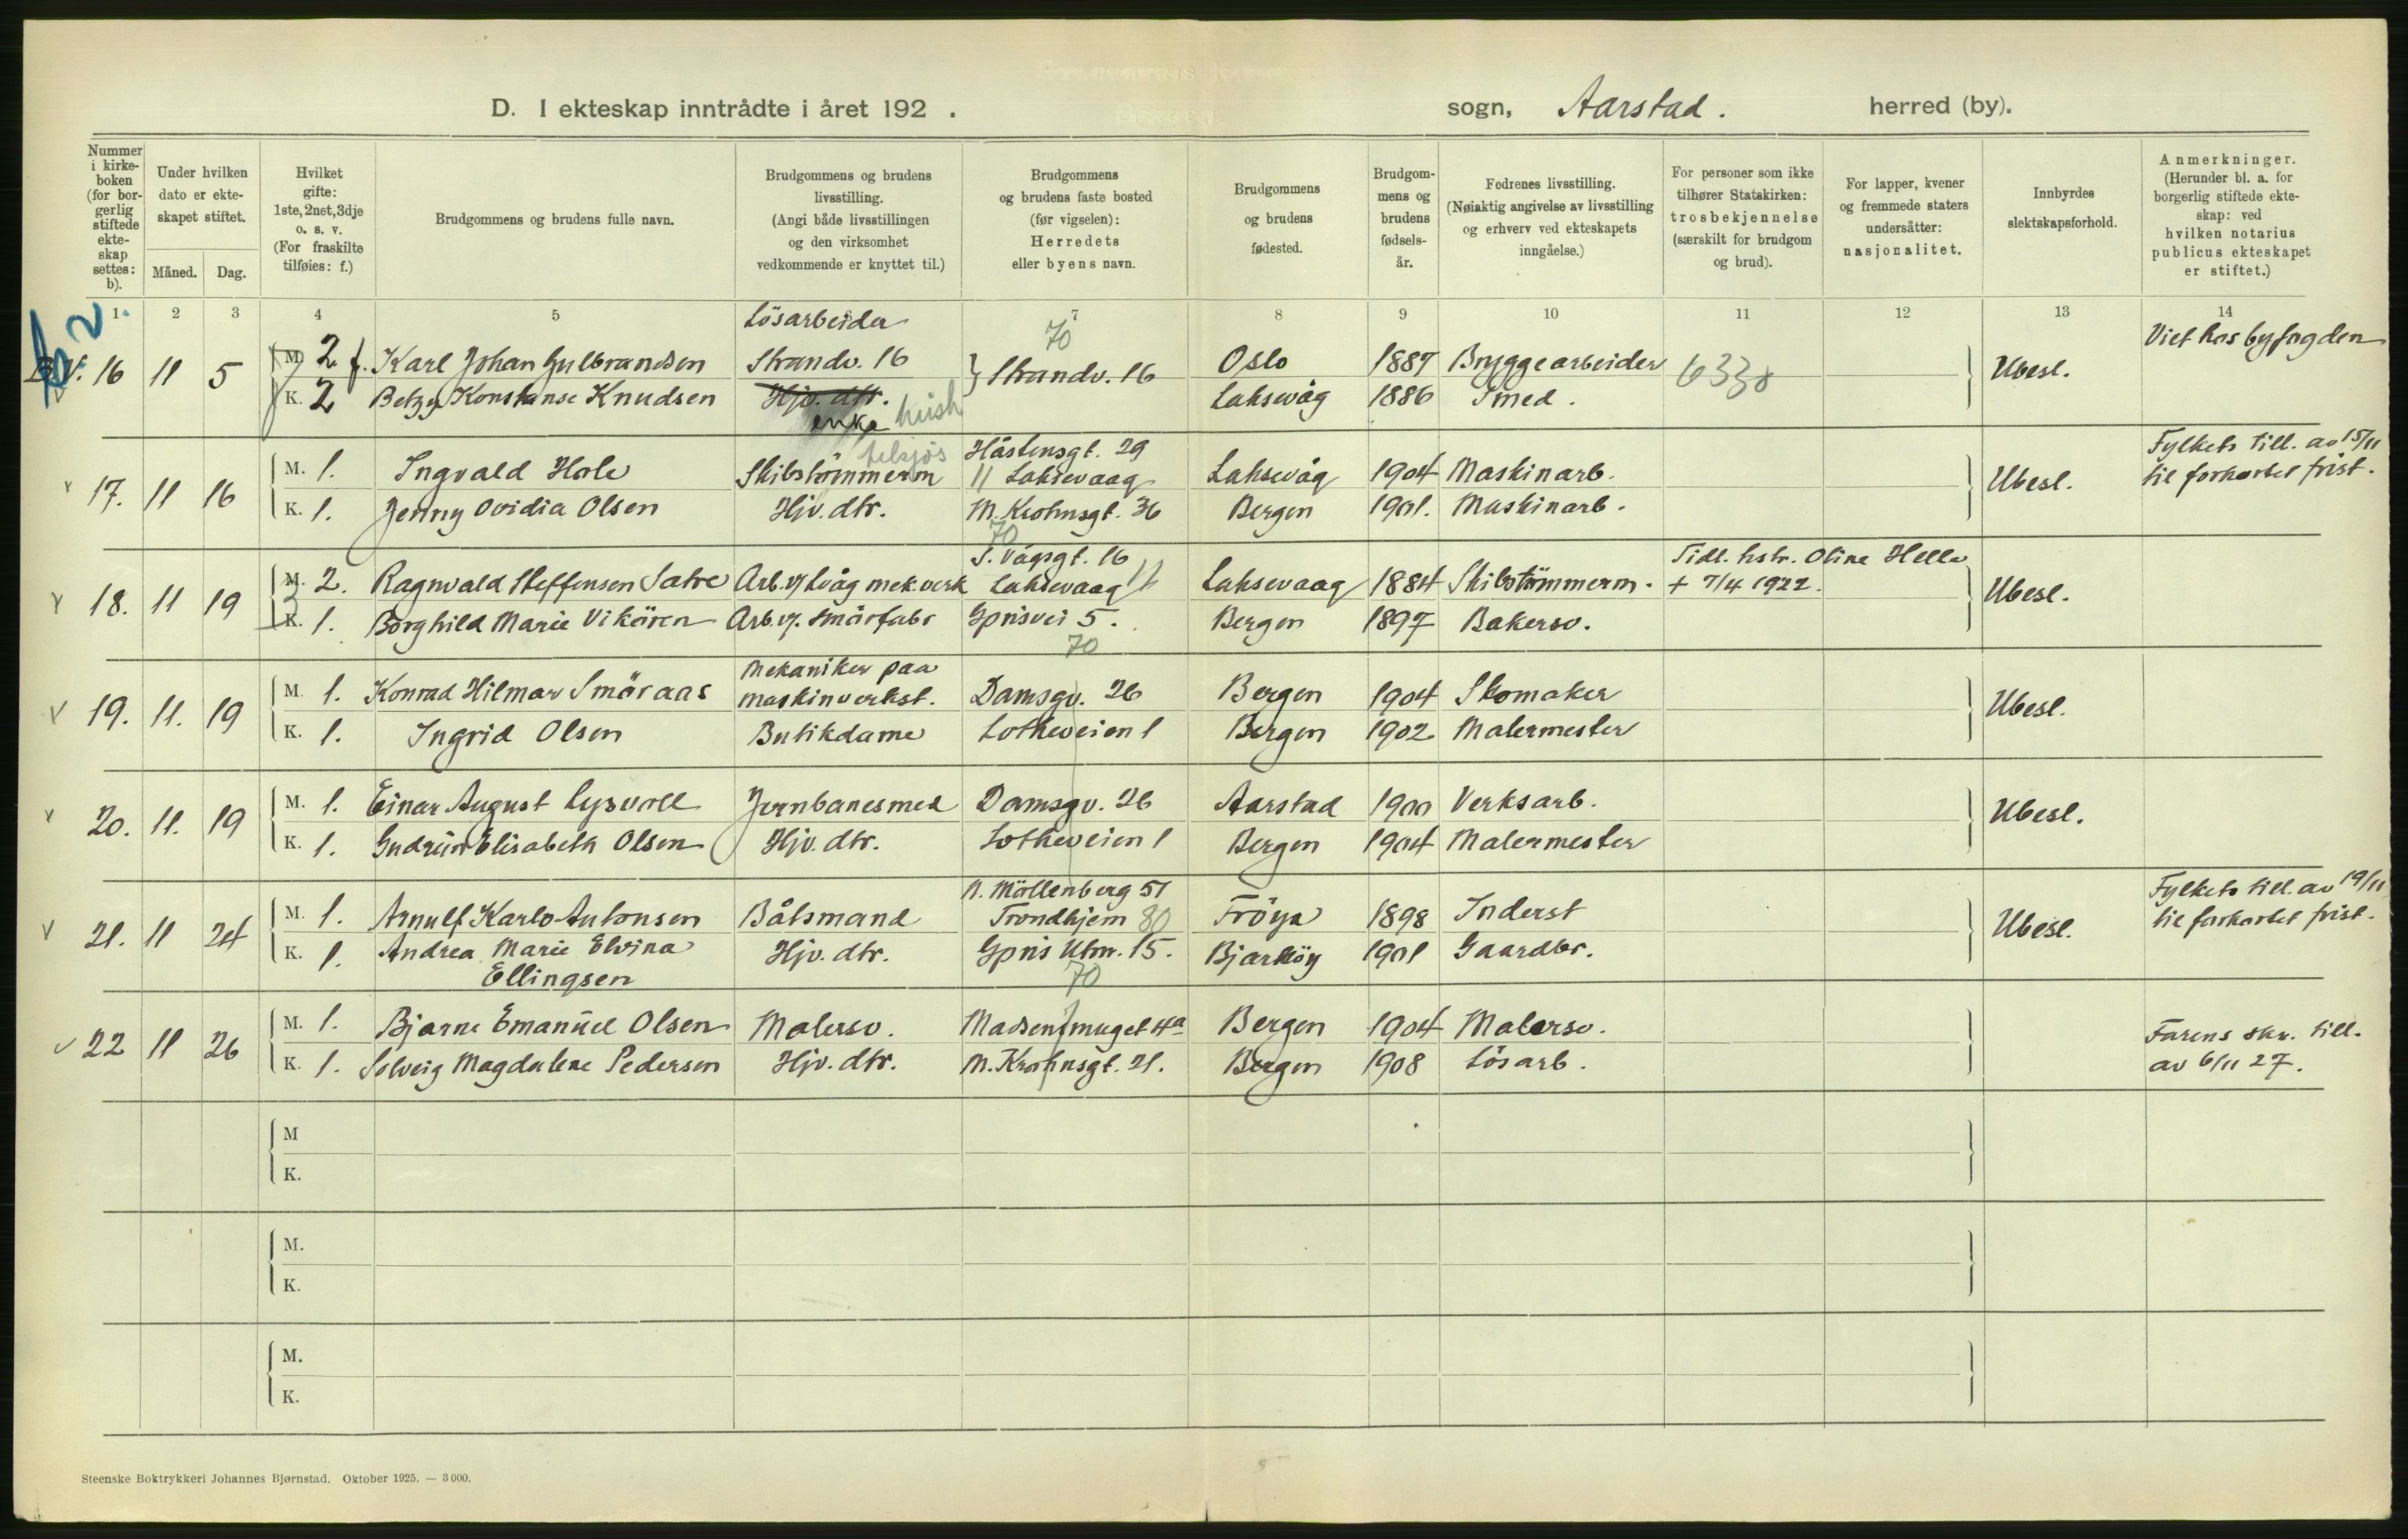 D. I ekteskap inntrådte i året 192 . sogn, Aarstad. herred (by).
Nummer i kirkeboken (for borgerlig stiftede ekteskap settes: b).
Under hvilken dato er ekteskapet stiftet.
Måned. Dag.
Hvilket gifte: 1ste, 2net, 3dje o. s. v. (For fraskilte tilføies: f.)
Brudgommens og brudens fulle navn.
Brudgommens og brudens livsstilling. (Angi både livsstillingen og den virksomhet vedkommende er knyttet til.)
Brudgommens og brudens faste bosted (før vigselen): Herredets eller byens navn.
Brudgommens og brudens fødested.
Brudgommens og brudens fødselsår.
Fedrenes livsstilling. (Nøiaktig angivelse av livsstilling og erhverv ved ekteskapets inngåelse.)
For personer som ikke tilhører Statskirken: trosbekjennelse (særskilt for brudgom og brud).
For lapper, kvener og fremmede staters undersåtter: nasjonalitet.
Innbyrdes slektskapsforhold.
Anmerkninger. (Herunder bl. a. for borgerlig stiftede ekteskap: ved hvilken notarius publicus ekteskapet er stiftet.)
1 2 3 4 5 7 8 9 10 11 12 13 14
Lösarbeider 70 Viet hos byfogden
16 11 5 M. 2 f. Karl Johan Gulbrandsen Strandv. 16 } Strandv. 16 Oslo 1887 Bryggearbeider 6330 Ubesl.
K. 2 Betzy Konstanse Knudsen Hjv. dtr. Laksevåg 1886 Smed.
enke hush
Håstensgt. 29 Fylkets till. av 15/11
17. 11 16 M. 1. Ingvald Hole Skibstömmerm 11 Laksevaag Laksevåg 1904 Maskinarb. Ubesl. til forkortet frist.
K. 1. Jenny Ovidia Olsen Hjv. dtr. M. Krohnsgt. 36 Bergen 1901. Maskinarb.
70
S. Vågsgt. 16 Tidl. hstr. Oline Helle
18. 11 19 M. 2. Ragnvald Steffensen Satre Arb. v/ Lvåg mek. verk Laksevaag 11 Laksevaag 1884 Skibstömmerm. + 7/4 1922. Ubesl.
K. 1. Borghild Marie Vikören Arb. v. smörfabr Gprisvei 5. Bergen 1897 Bakersv.
70
Mekaniker paa
19. 11. 19 M. 1. Konrad Hilmar Smöraas maskinverkst. Damsgv. 26 Bergen 1904 Skomaker Ubesl.
K. 1. Ingrid Olsen Butikdame Lotheveien 1 Bergen 1902 Malermester
20. 11. 19 M. 1. Einar August Lysvoll Jernbanesmed Damsgv. 26 Aarstad 1900 Verksarb. Ubesl.
K. 1. Gudrun Elisabeth Olsen Hjv. dtr. Lotheveien 1 Bergen 1904 Malermester
N. Möllenberg 51 Fylkets till. av 19/11
21. 11 24 M. 1. Arnulf Karlo Antonsen Båtsmand Trondhjem 80 Fröya 1898 Inderst Ubesl. til forkortet frist.
K. 1. Andrea Marie Elvina Hjv. dtr. Gpris Utm. 15. Bjarköy 1901 Gaardbr.
Ellingsen 70
22 11 26 M. 1. Bjarne Emanuel Olsen Malersv. Madsensmuget 4a Bergen 1904 Malersv. Farens skr. till.
K. 1. Solveig Magdalene Pedersen Hjv. dtr. M. Krohnsgt. 21. Bergen 1908 Lösarb. av 6/11 27.
M
K.
M.
K.
M.
K.
Steenske Boktrykkeri Johannes Bjørnstad. Oktober 1925. — 3000.